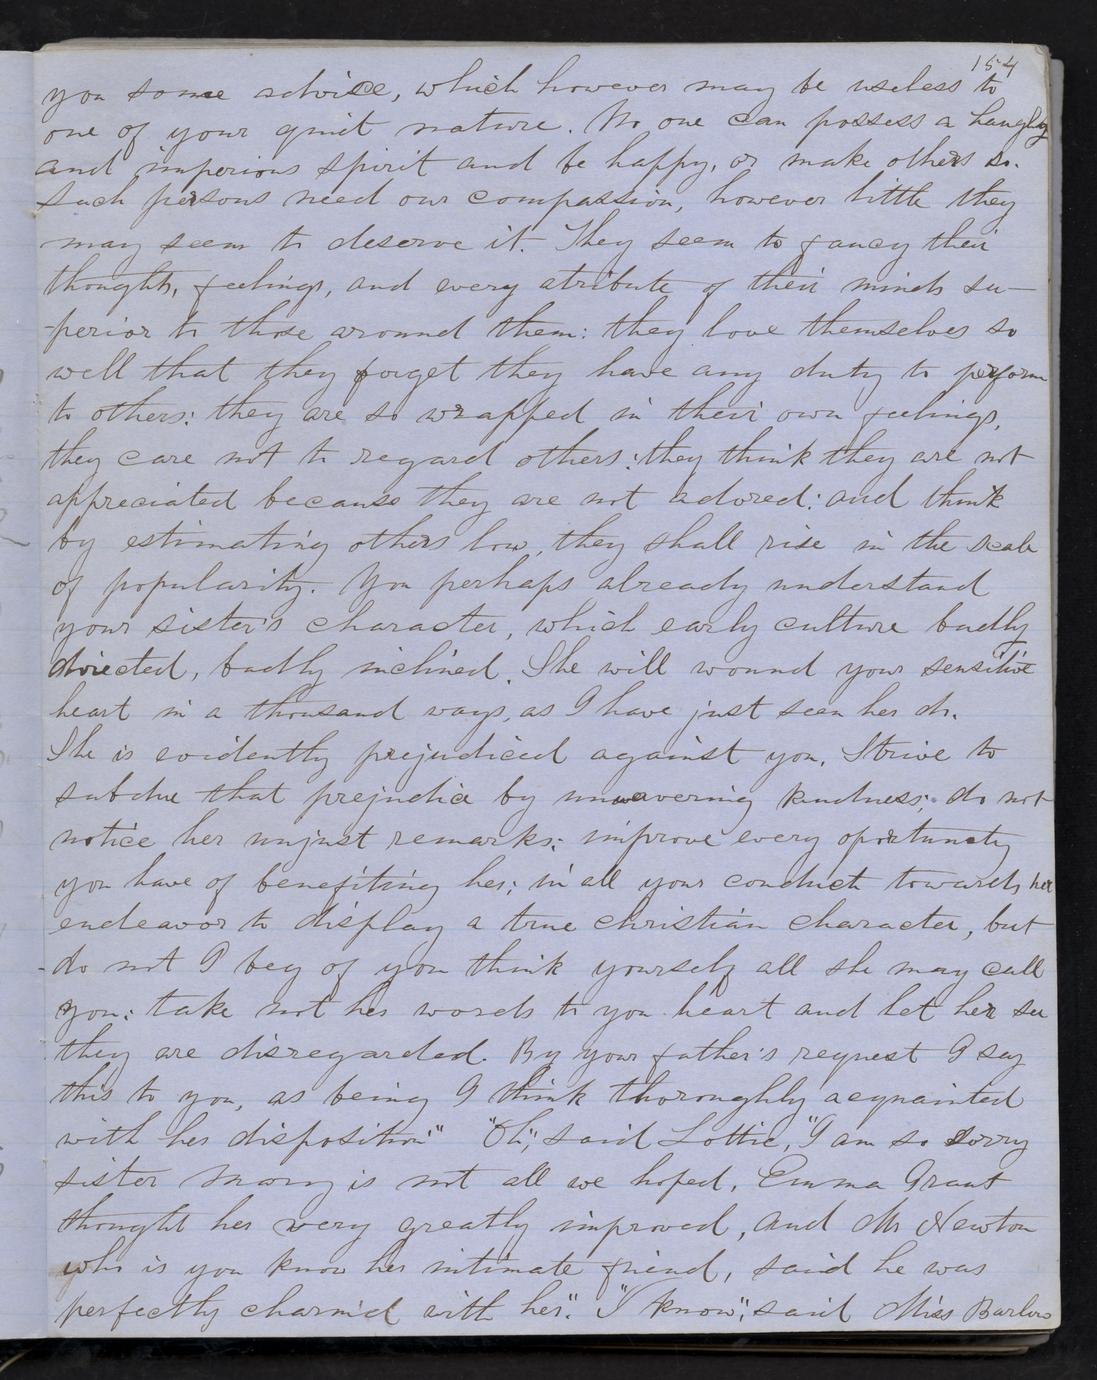 154
you some advice, which however may be useless to
one of your quiet nature. No one can possess a haughty
and imperious spirit and be happy, or make others so.
Such persons need our compassion, however little they
may seem to deserve it. They seem to fancy their
thoughts, feelings, and every atribute of their minds su-
-perior to those around them: they love themselves so
well that they forget they have any duty to perform
to others: they are so wrapped in their own feelings,
they care not to regard others: they think they are not
appreciated because they are not adored: and think
by estimating others low, they shall rise in the scale
of popularity. You perhaps already understand
your sister's character, which early culture badly
directed, badly inclined. She will wound your sensitive
heart in a thousand ways, as I have just seen her do.
She is evidently prejudiced against you. Strive to
subdue that prejudice by unwavering kindness; do not
notice her unjust remarks; improve every oportunety
you have of benefiting her; in all your conduct towards her
endeavor to display a true christian character, but
do not I beg of you think yourself all she may call
you: take not her words to you heart and let her see
they are disregarded. By your father's request I say
this to you, as being I think thoroughly acquainted
with her disposition" "Oh", said Lottie, "I am so sorry
sister Mary is not all we hoped, Emma Grant
thought her very greatly improved, and Mr Newton
who is you know her intimate friend, said he was
perfectly charm'd with her." "I know", said Miss Barlow